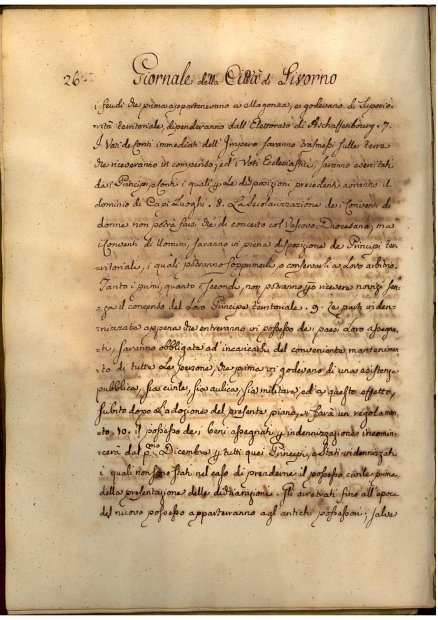 26 Giornale della Città di Livorno
i feudi che prima appartenevano a Magonza, e godevano di Superio-
rità territoriale, dipenderanno dall'Elettorato di Aschaffenbourg. 7.
I Voti de Conti immediati dell'Impero saranno trasmessi sulle terre
che riceveranno in compenso, ed i Voti Ecclesiastici, saranno esercitati
da i Principi, e Conti i quali p. le disposizioni precedenti avranno il
dominio di Capi Luoghi. 8. La secolarizzazione de i Conventi di
donne non potrà farsi che di concerto col Vescovo Diocesano, ma
i Conventi di Uomini, saranno in piena disposizione de Principi ter-
ritoriali, i quali potranno sopprimerli, o conservarli a loro arbitrio.
Tanto i primi, quanto i secondi, non potranno più ricevere novizi sen-
za il concenso del loro Principe territoriale. 9. Le parti inden-
nizzate appena che entreranno in possesso de i paesi loro assegna-
ti, saranno obbligate ad incaricarsi del conveniente mantenimen-
to di tutte le persone, che prima vi godevano di una esistenza
pubblica, sia civile, sia aulica, sia militare, ed a questo effetto,
subito dopo l'adozione del presente piano, si farà un regolamen-
to. 10. Il possesso de i beni assegnati p. indennizzazione incomin-
cerà dal p.mo Dicembre p. tutti quei Principi, e Stati indennizzati
i quali non fossero stati nel caso di prenderne il possesso civile prima
della presentazione delle dichiarazioni. Gli arretrati fino all'epoca
del nuovo possesso apparterranno agl'antichi possessori, salve